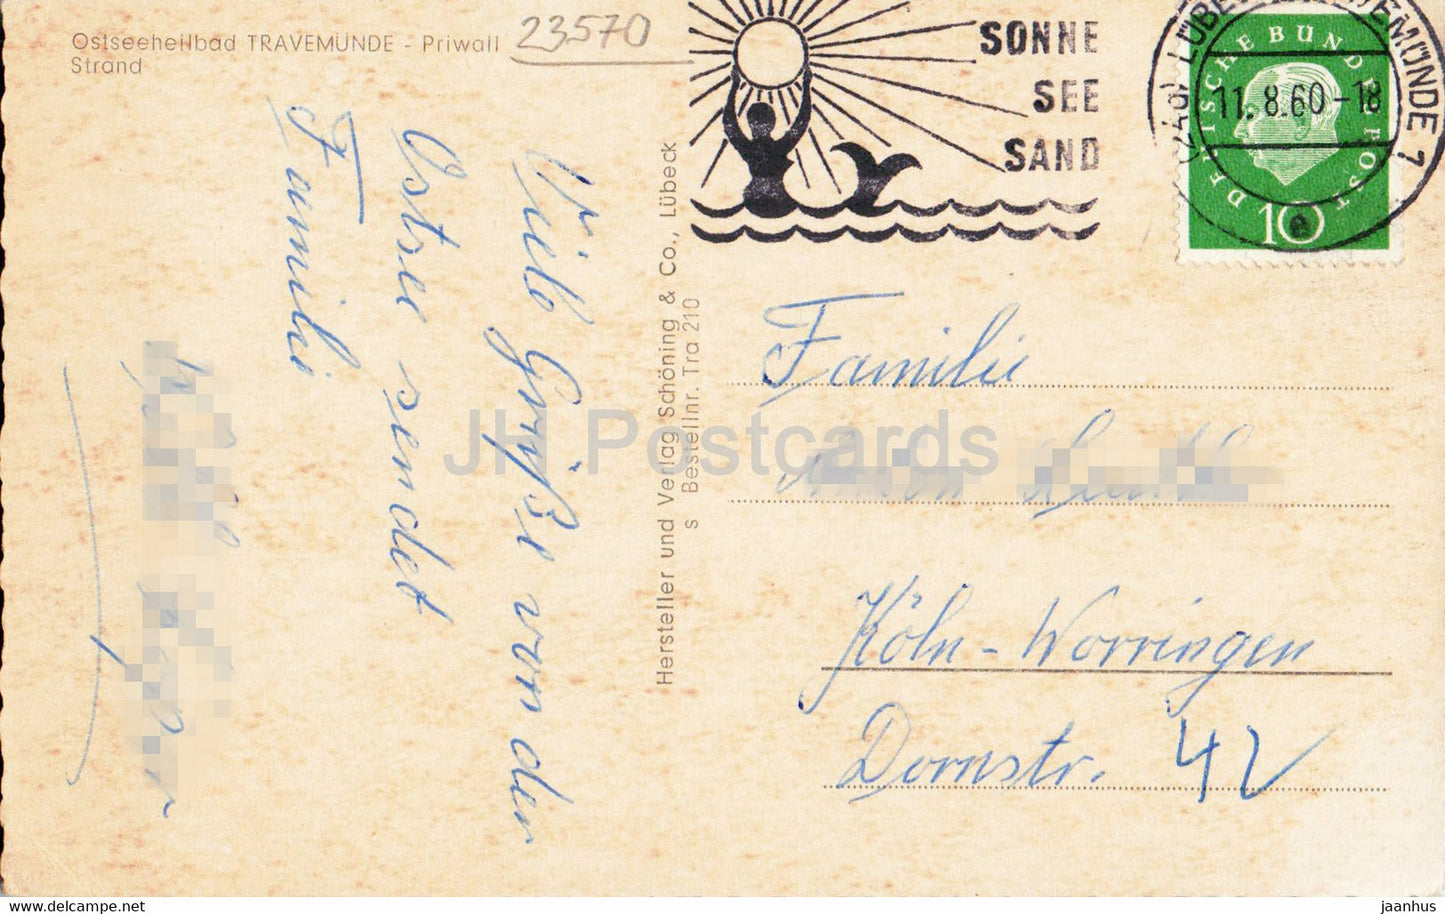 Ostseeheilbad TRAVEMÜNDE - Priwall
Strand
23570
SONNE
SEE
SAND
LÜBECK-TRAVEMÜNDE 1
11.8.60-18
DEUTSCHE BUNDESPOST
10
Viele Grüße von den
Ostsee sendet
Familie
Hersteller und Verlag Schöning & Co., Lübeck
s Bestellnr. Tra 210
Familie
Köln-Worringen
Dornstr. 42
JH Postcards
delcampe.net
jaanhus